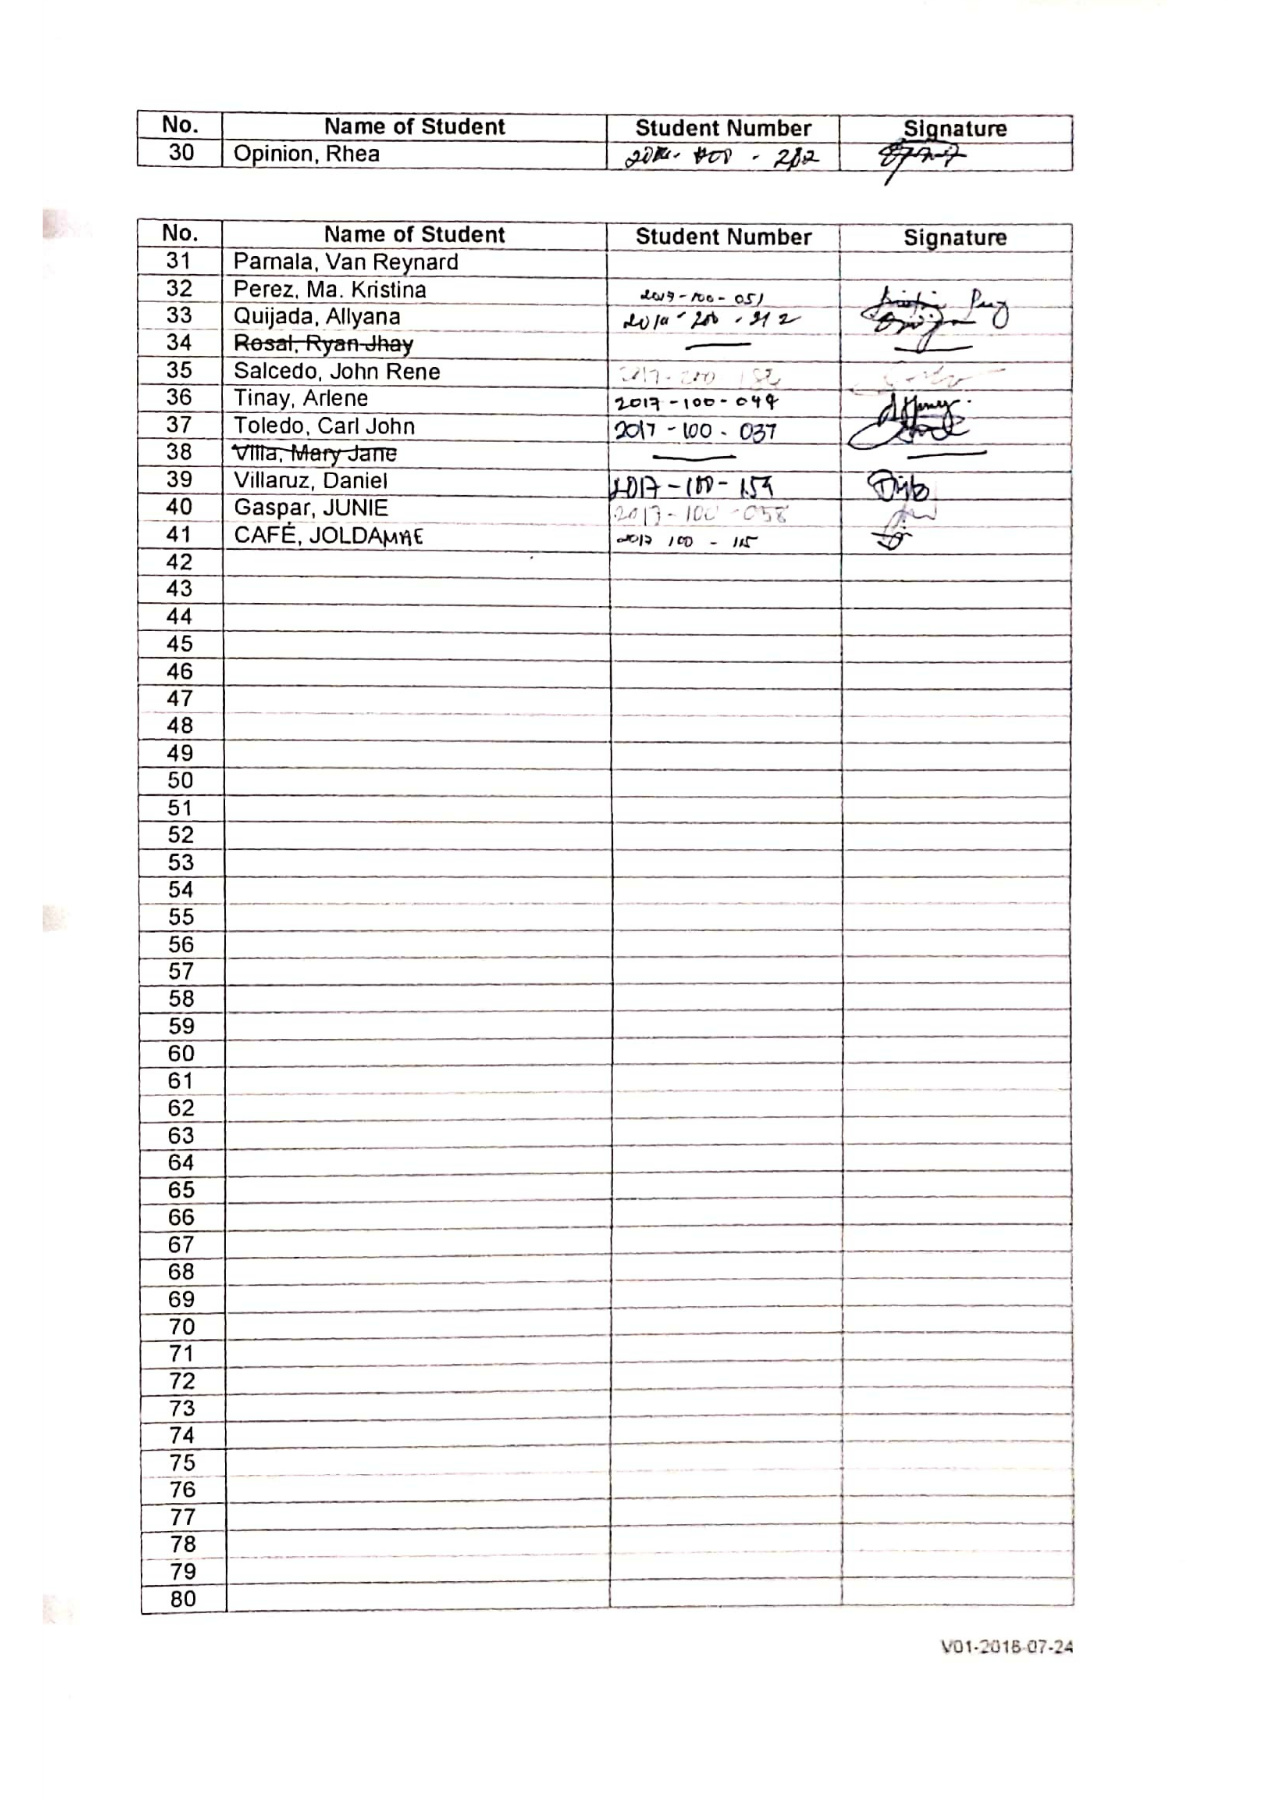 No. Name of Student Student Number Signature
30 Opinion, Rhea
No. Name of Student Student Number Signature
31 Pamala, Van Reynard
32 Perez, Ma. Kristina 2017-100-051
33 Quijada, Allyana
34 Rosal, Ryan Jhay
35 Salcedo, John Rene
36 Tinay, Arlene 2017-100-049
37 Toledo, Carl John 2017-100-037
38 Villa, Mary Jane
39 Villaruz, Daniel 2017-100-159
40 Gaspar, JUNIE 2017-100-058
41 CAFÉ, JOLDAMAE 2017 100 - 115
42
43
44
45
46
47
48
49
50
51
52
53
54
55
56
57
58
59
60
61
62
63
64
65
66
67
68
69
70
71
72
73
74
75
76
77
78
79
80
V01-2018-07-24